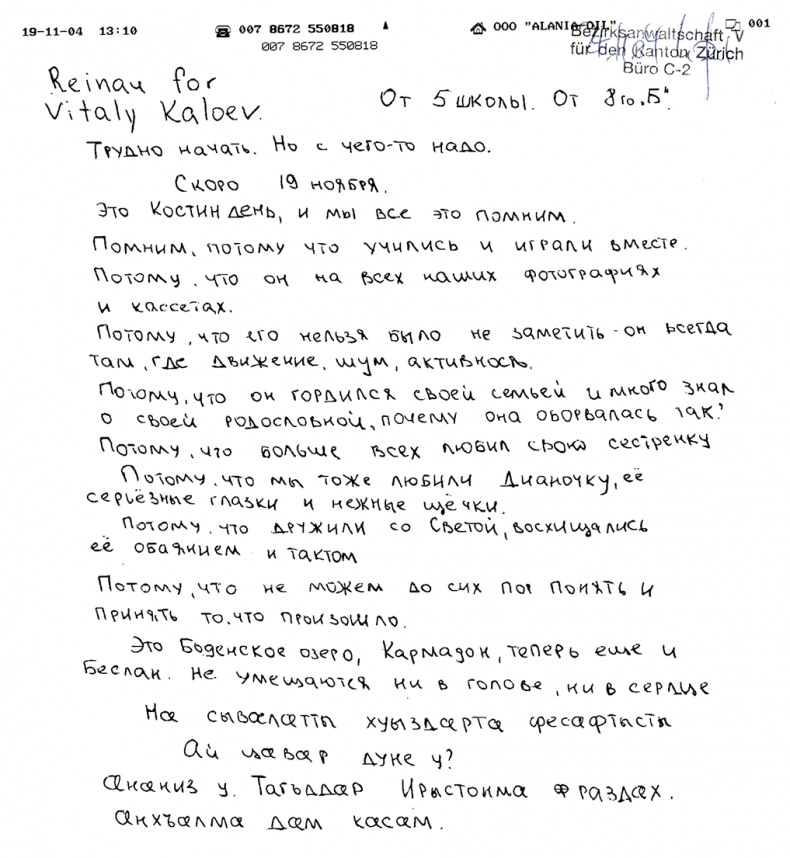 19-11-04 13:10 007 8672 550818 ООО "ALANIA-OIL" 001
007 8672 550818
Bezirksanwaltschaft V
für den Kanton Zürich
Büro C-2
Reinau for
Vitaly Kaloev.
От 5 школы. От 8го „Б"
Трудно начать. Но с чего-то надо.
Скоро 19 ноября.
Это Костин день, и мы все это помним.
Помним, потому что учились и играли вместе.
Потому, что он на всех наших фотографиях
и кассетах.
Потому, что его нельзя было не заметить - он всегда
там, где движение, шум, активность.
Потому, что он гордился своей семьей и много знал
о своей родословной, почему она оборвалась так?
Потому, что больше всех любил свою сестренку
Потому, что мы тоже любили Дианочку, её
серьёзные глазки и нежные щёчки.
Потому, что дружили со Светой, восхищались
её обаянием и тактом
Потому, что не можем до сих пор понять и
принять то, что произошло.
Это Боденское озеро, Кармадон, теперь еще и
Беслан. Не умещаются ни в голове, ни в сердце
На сывæлæттӕ хуыздæртæ фесæфтысты
Ай цавæр дуне у?
Ирыстонмæ раздæх.
Æнхъæлмæ дæм кæсæм.